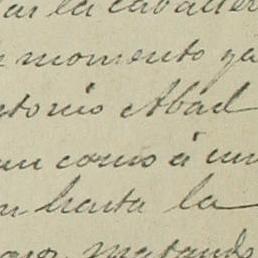 la caballer
momento ya
ntonio Abad
un como á un
n hasta la
matando